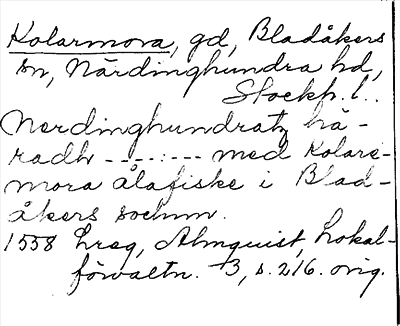 Kolarmora, gd, Bladåkers
sn, Närdinghundra hd,
Stockh. l..
Nerdinghundratz hä-
radh --------- med Kolare-
mora ålafiske i Blad-
åkers sochnn.
1558 Lreg, Almquist, Lokal-
förvaltn. 3, s. 216. orig.